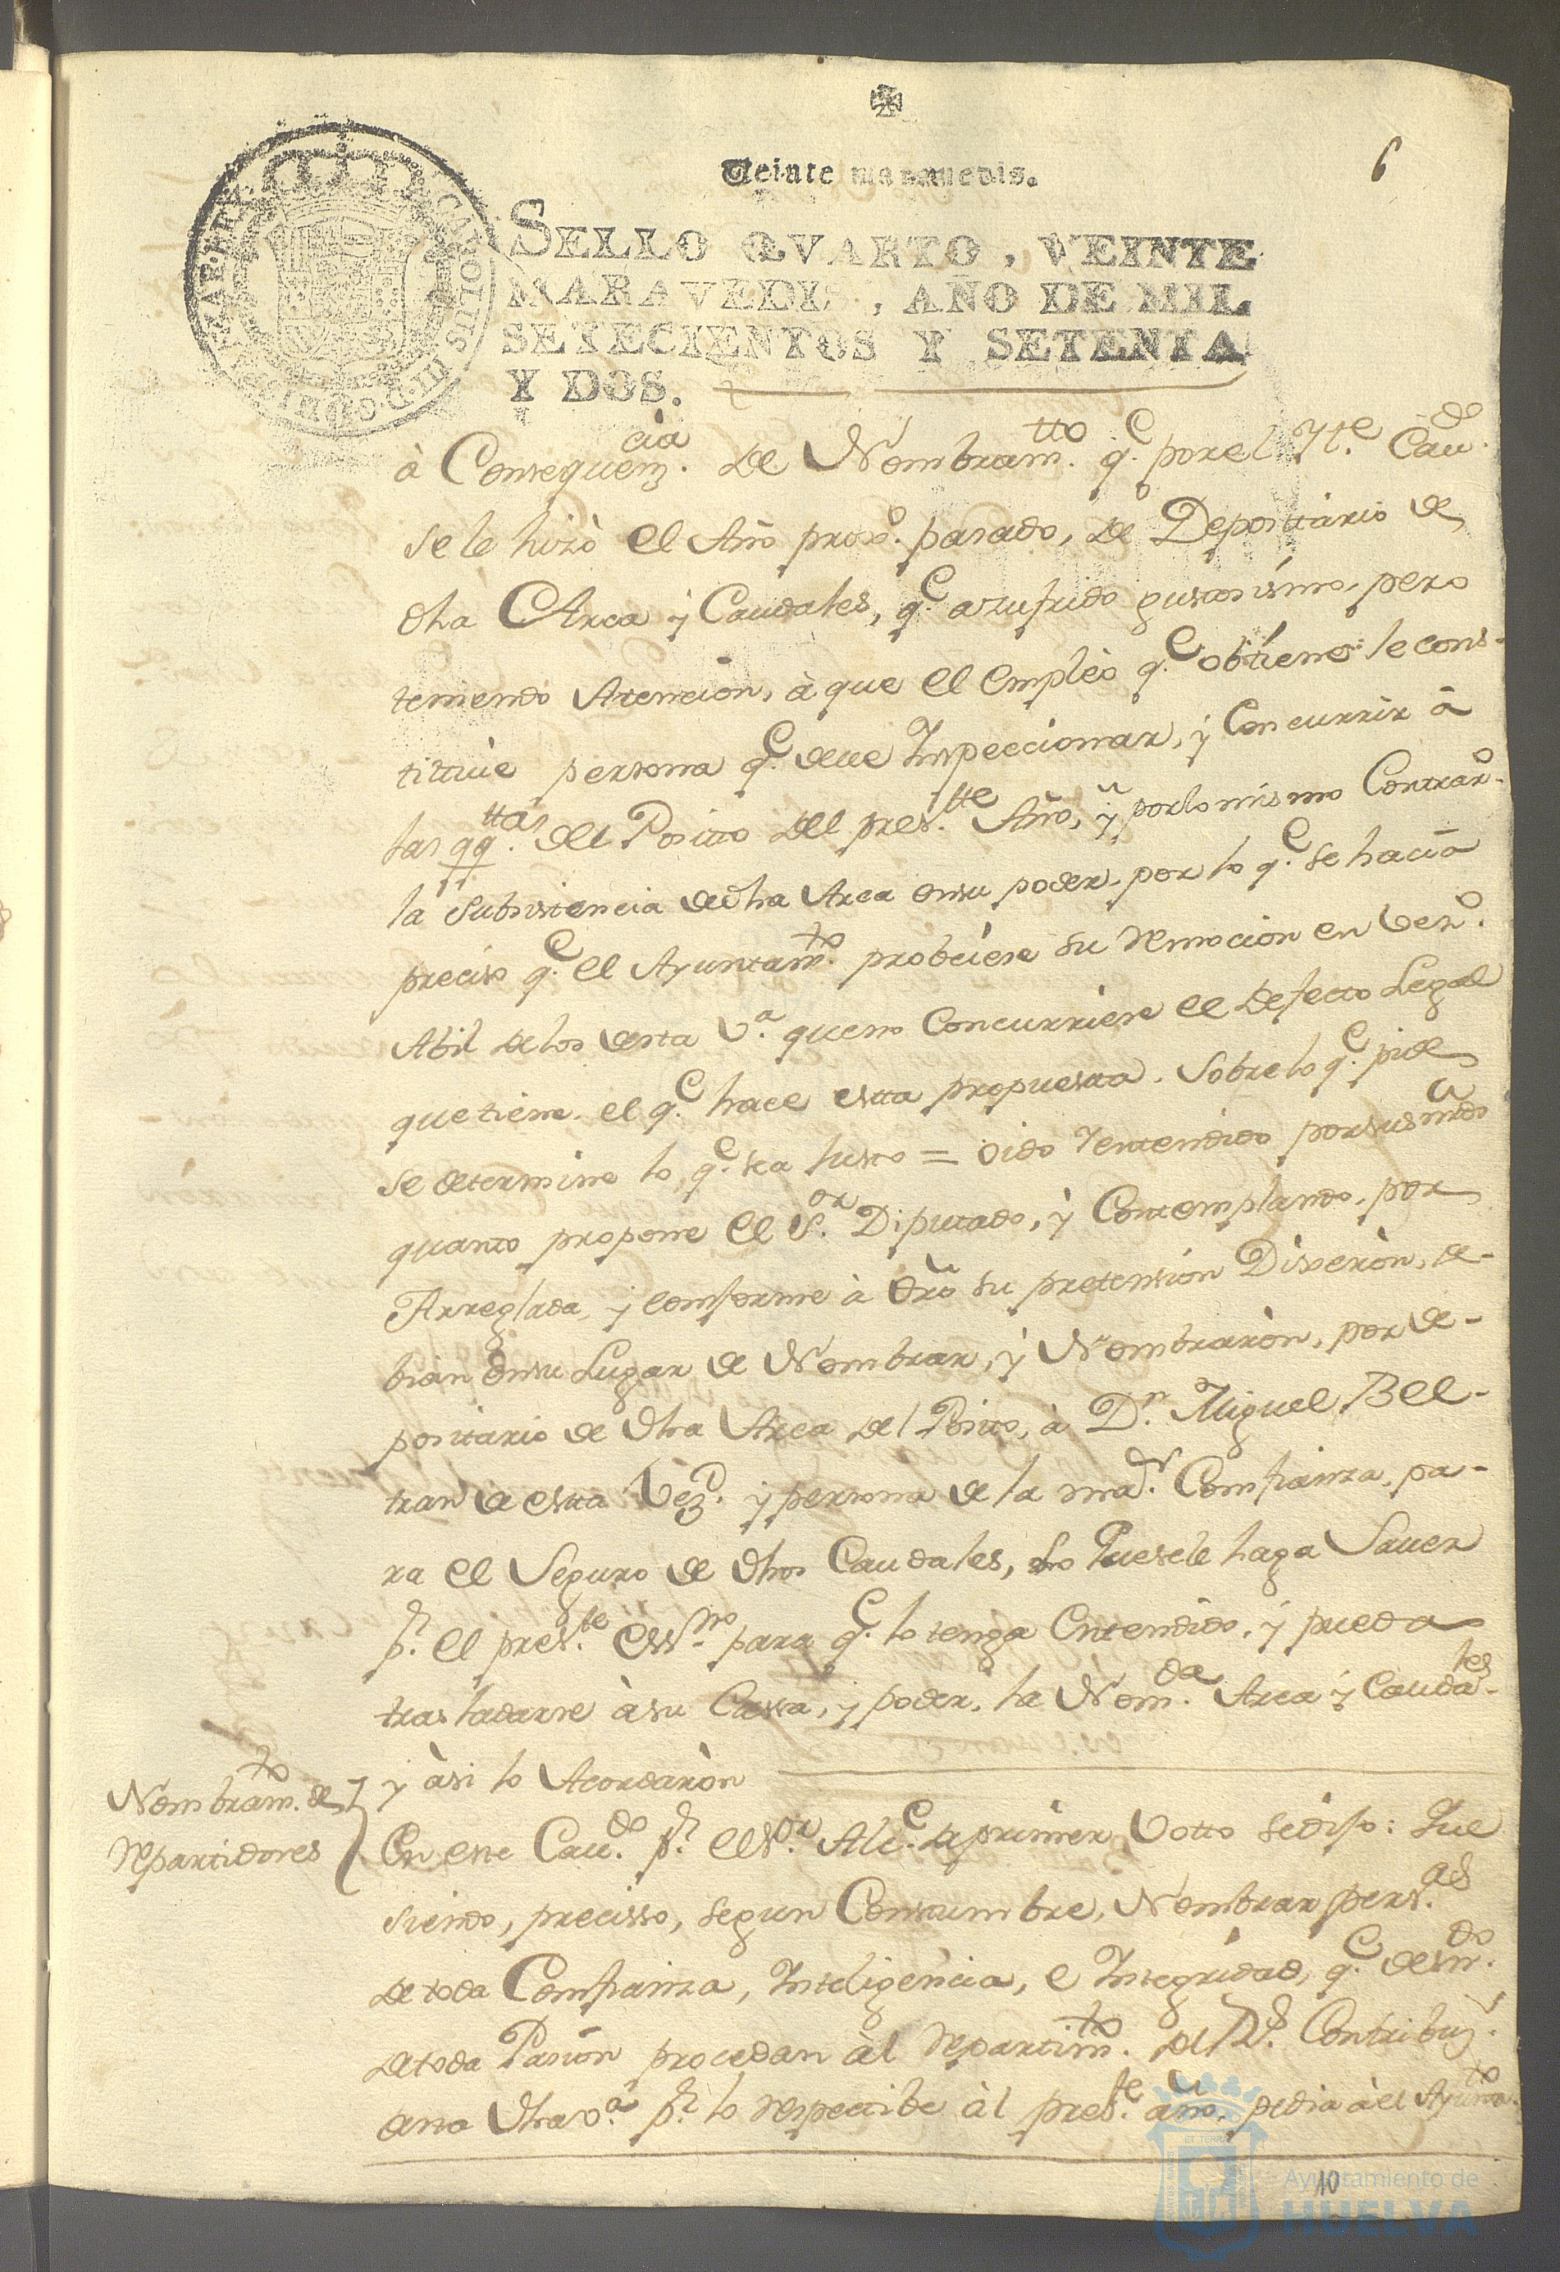 6
Veinte maravedis.
SELLO QVARTO, VEINTE
MARAVEDIS, AÑO DE MIL
SETECIENTOS Y SETENTA
Y DOS.
CAROLUS III D G HISPANIAR REX
à Consequenz.cia de Nombram.tto q.e por el Ytt.e Cav.do
se le hizò el Año prox.o pasado, de Deposittario de
dha Arca ÿ Caudales, q.e a sufrido gustosísimo, pero
teniendo Atencion, à que el empléo q.e obtiene le cons-
tittuie persona q.e deve Inspeccionar, ÿ Concurrir à
las qq.ttas del Positto del pres.tte Año, ÿ por lo mismo Contrar.o
la Subsistencia de dha Arca en su poder, por lo q.e se hacia
preciso q.e el Ayuntam.to probeiese su remocion en Vez.o
Abil de los de esta V.a que no Concurriese el defecto Legal
que tiene el q.e hace estta propuestta. Sobre lo q.e pide
se determine lo q.e sea Justo = Oido Yentendido por sus mrds
quanto propone el S.or Diputado, ÿ Contemplando, por
Arreglada, ÿ conforme à dro su pretensión Dixeròn, de-
bian en su Lugar de Nombrar, ÿ Nombraròn, por de-
positario de dha Arca del Positto, à D.n Miguel Bel-
tran de estta Vez.d ÿ persona de la ma.or Confianza, pa-
ra el Seguro de dhos Caudales, Lo Que se le haga Saver
p.r el pres.te ess.no para q.e lo tenga Entendido, ÿ pueda
trasladarse à su Cassa, ÿ poder, la Nom.da Arca ÿ Cauda-les
y àsi lo Acordaròn
Nombram.to de
repartidores
En este Cav.do p.r el S.or Alc.e de primer Votto se dijo: Que
siendo, precisso, segun Constumbre, Nombrar pers.as
de toda Confianza, Inteligencia, e Integridad, q.e desn.do
de toda Pasion procedan àl repartim.to de R.s Contribuz.s
de esta dha V.a p.r lo respectibo àl pres.te año, pedia àel Ayunta.to
10
Ayuntamiento de
HUELVA